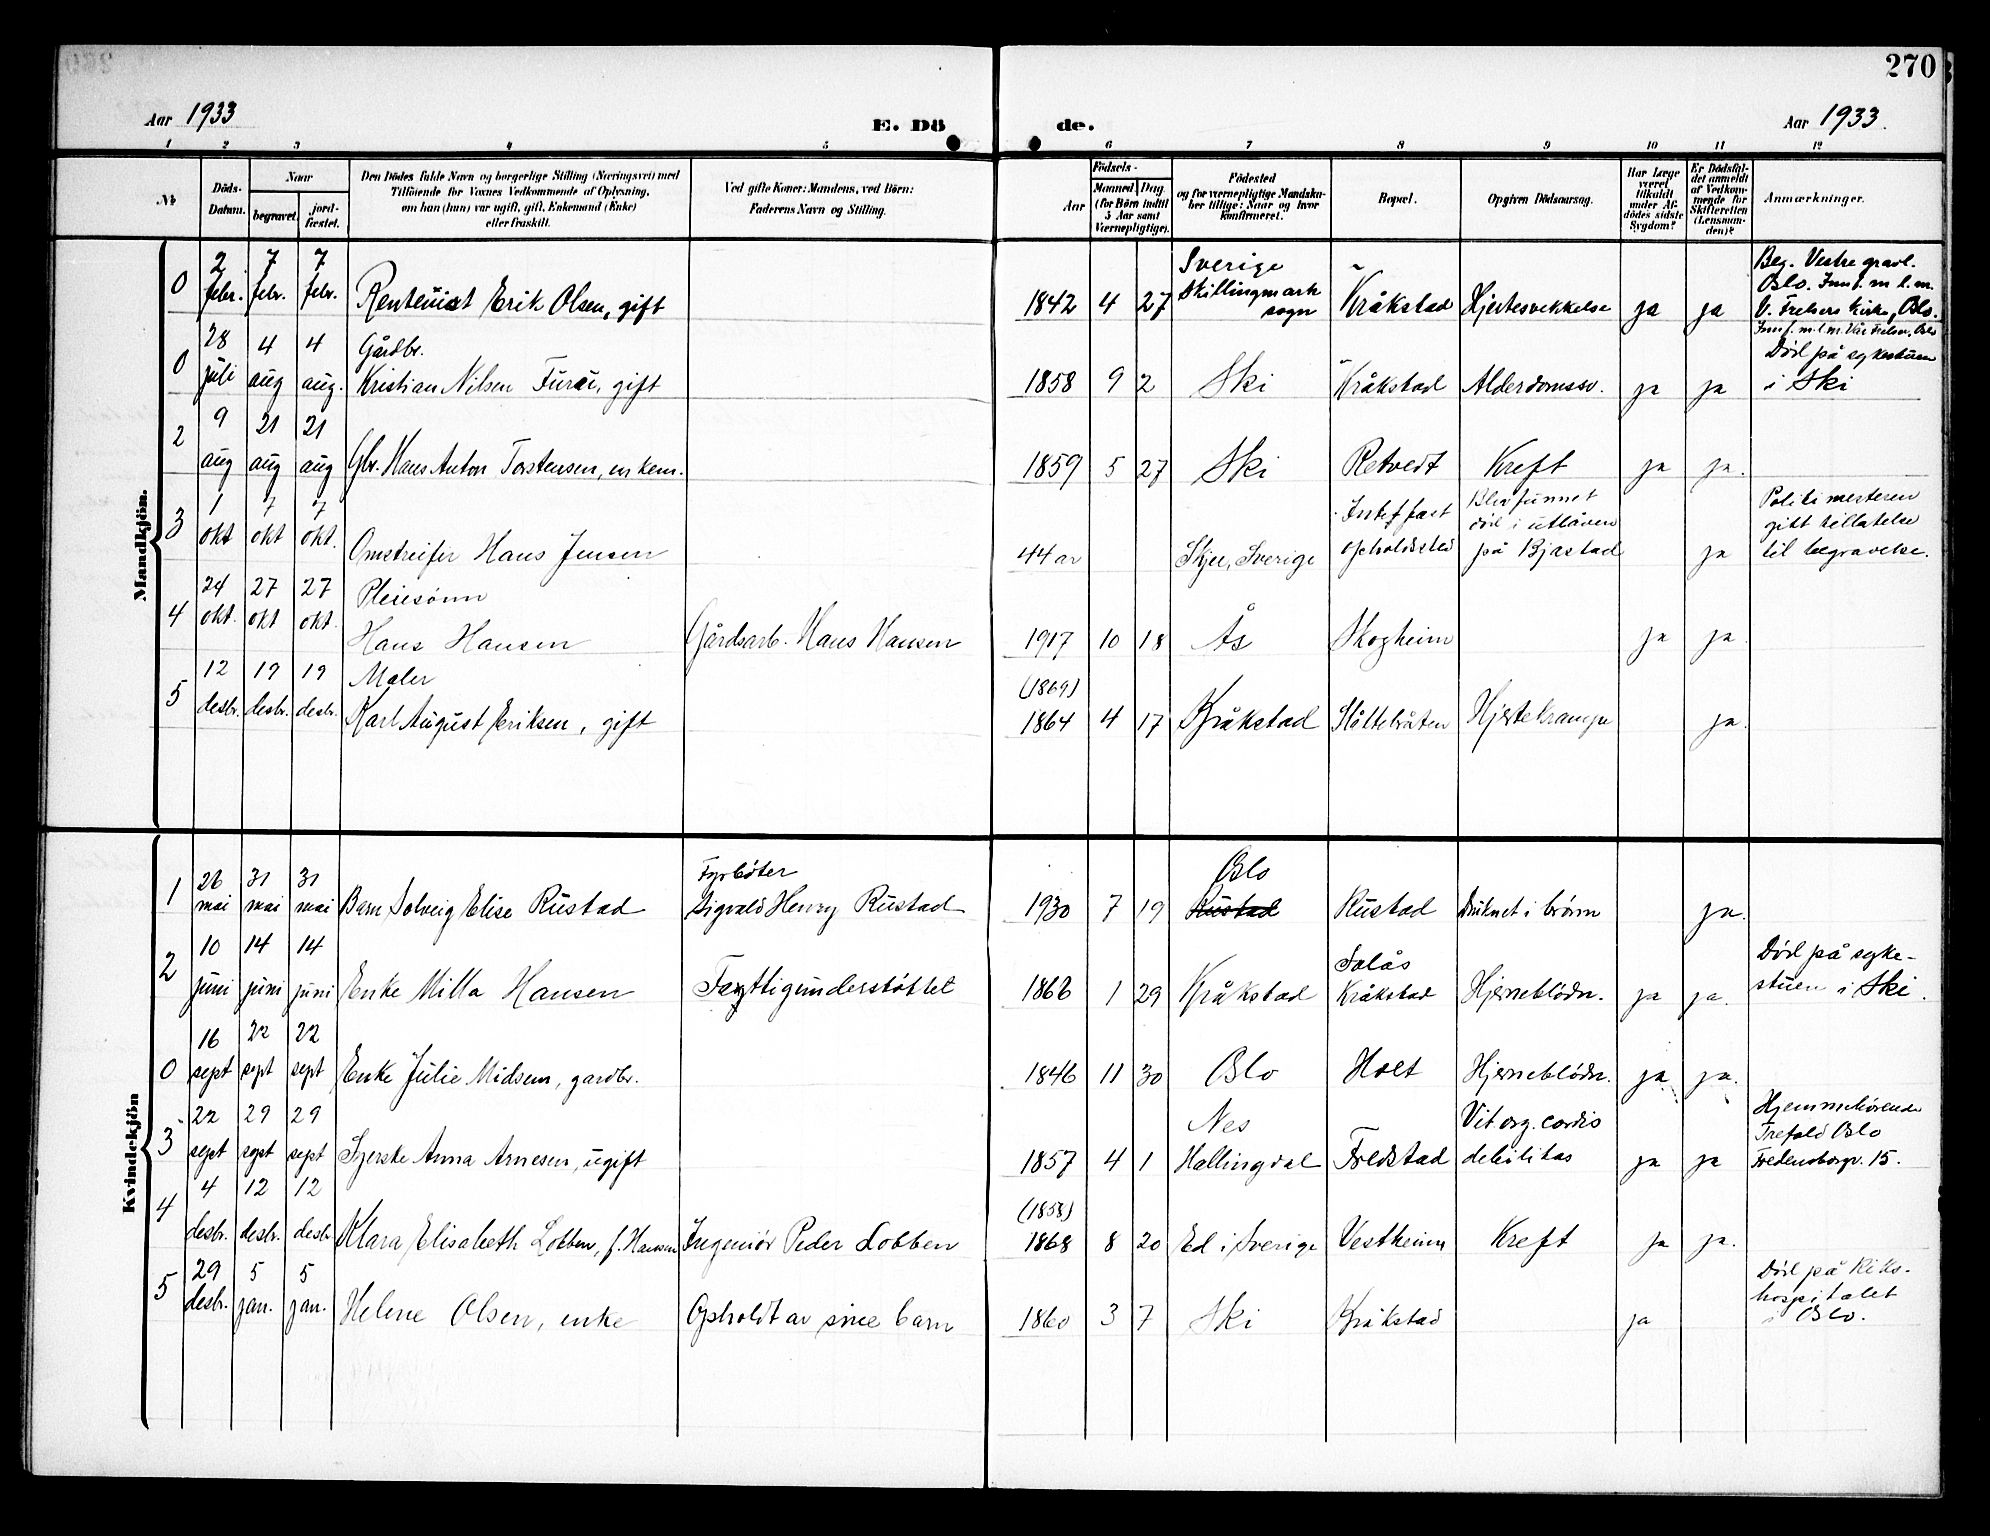 270
Aar 1933
E. Dö
de.
Aar 1933.
1 2 3 4 5 6 7 8 9 10 11 12
№
Döds-
Datum.
Naar
begravet.
jord-
fæstet.
Den Dödes fulde Navn og borgerlige Stilling (Næringsvei) med
Tilföiende for Voxnes Vedkommende af Oplysning,
om han (hun) var ugift, gift, Enkemand (Enke)
eller fraskilt.
Ved gifte Koner: Mandens, ved Börn:
Faderens Navn og Stilling.
Födsels-
Aar
Maaned. Dag.
(for Börn indtil
5 Aar samt
Værnepligtige).
Födested
og for værnepligtige Mandska-
ber tillige: Naar og hvor
konfirmeret.
Bopæl.
Opgiven Dödsaarsag.
Har Læge
været
tilkaldt
under Af-
dödes sidste
Sygdom?
Er Dödsfal-
det anmeldt
af Vedkom-
mende for
Skifteretten
(Lensman-
den)?
Anmærkninger.
Mandkjön.
0 2 febr. 7 febr. 7 febr.
Rentenist Erik Olsen, gift
1842 4 27
Sverige
Skillingmark
sogn
Kråkstad
Hjertesvekkelse
ja ja
Beg. Vestre gravl.
Oslo. Innf. m l.m.
V. Frelsers Kirke, Oslo.
0 28 juli 4 aug 4 aug.
Gårdbr.
Kristian Nilsen Furu, gift
1858 9 2
Ski
Kråkstad
Alderdomssv.
ja ja
Innf. m. l. m. Vår Frelser, Oslo
Död på sykestuen
i Ski
2 9 aug 21 aug 21 aug
Gbr. Hans Anton Torstensen, enkem.
1859 5 27
Ski
Retvedt
Kreft
ja ja.
3 1 okt 7 okt 7 okt.
Omstreifer Hans Jensen
44 år
Skjee, Sverige
Intet fast
opholdsted
Blev funnet
död i utlåven
på Bjastad
ja
Politimesteren
gitt tillatelse
til begravelse.
4 24 okt. 27 okt 27 okt.
Pleiesönn
Hans Hansen
Gårdsarb. Hans Hansen
1917 10 18
Ås
Skogheim
ja ja.
5 12 desbr. 19 desbr. 19 desbr.
Maler
Karl August Eriksen, gift
(1869)
1864 4 17
Kråkstad
Slåttebråten
Hjertekrampe
ja.
Kvindekjön
1 26 mai 31 mai 31 mai
Barn Solveig Elise Rustad
Fyrböter
Sigvald Henry Rustad
1930 7 19
Oslo
Rustad
Rustad
Druknet i brönn
ja.
2 10 juni 14 juni 14 juni
Enke Milla Hansen
Fattigunderstöttet
1866 1 29
Kråkstad
Solås
Kråkstad
Hjerneblödn.
ja ja.
Död på syke-
stuen i Ski.
0 16 sept 22 sept 22 sept
Enke Julie Midsem, gardbr.
1846 11 30
Oslo
Holt
Hjerneblödn.
ja ja.
3 22 sept 29 sept 29 sept
Syerske Anna Arnesen, ugift
1857 4 1
Nes
Hallingdal
Fredstad
Vit. org. cordis
debilitas
ja ja
Hjemmehörende
Trefold. Oslo
Fredensborgv. 15.
4 4 desbr. 12 desbr. 12 desbr
Klara Elisabeth Lobben, f. Hansen
Ingeniör Peder Lobben
(1858)
1868 8 20
Ed i Sverige
Vestheim
Kreft
ja ja.
5 29 desbr. 5 jan. 5 jan.
Helene Olsen, enke
Opholdt av sine barn
1860 3 7
Ski
Kråkstad
ja
Död på Riks-
hospitalet
i Oslo.